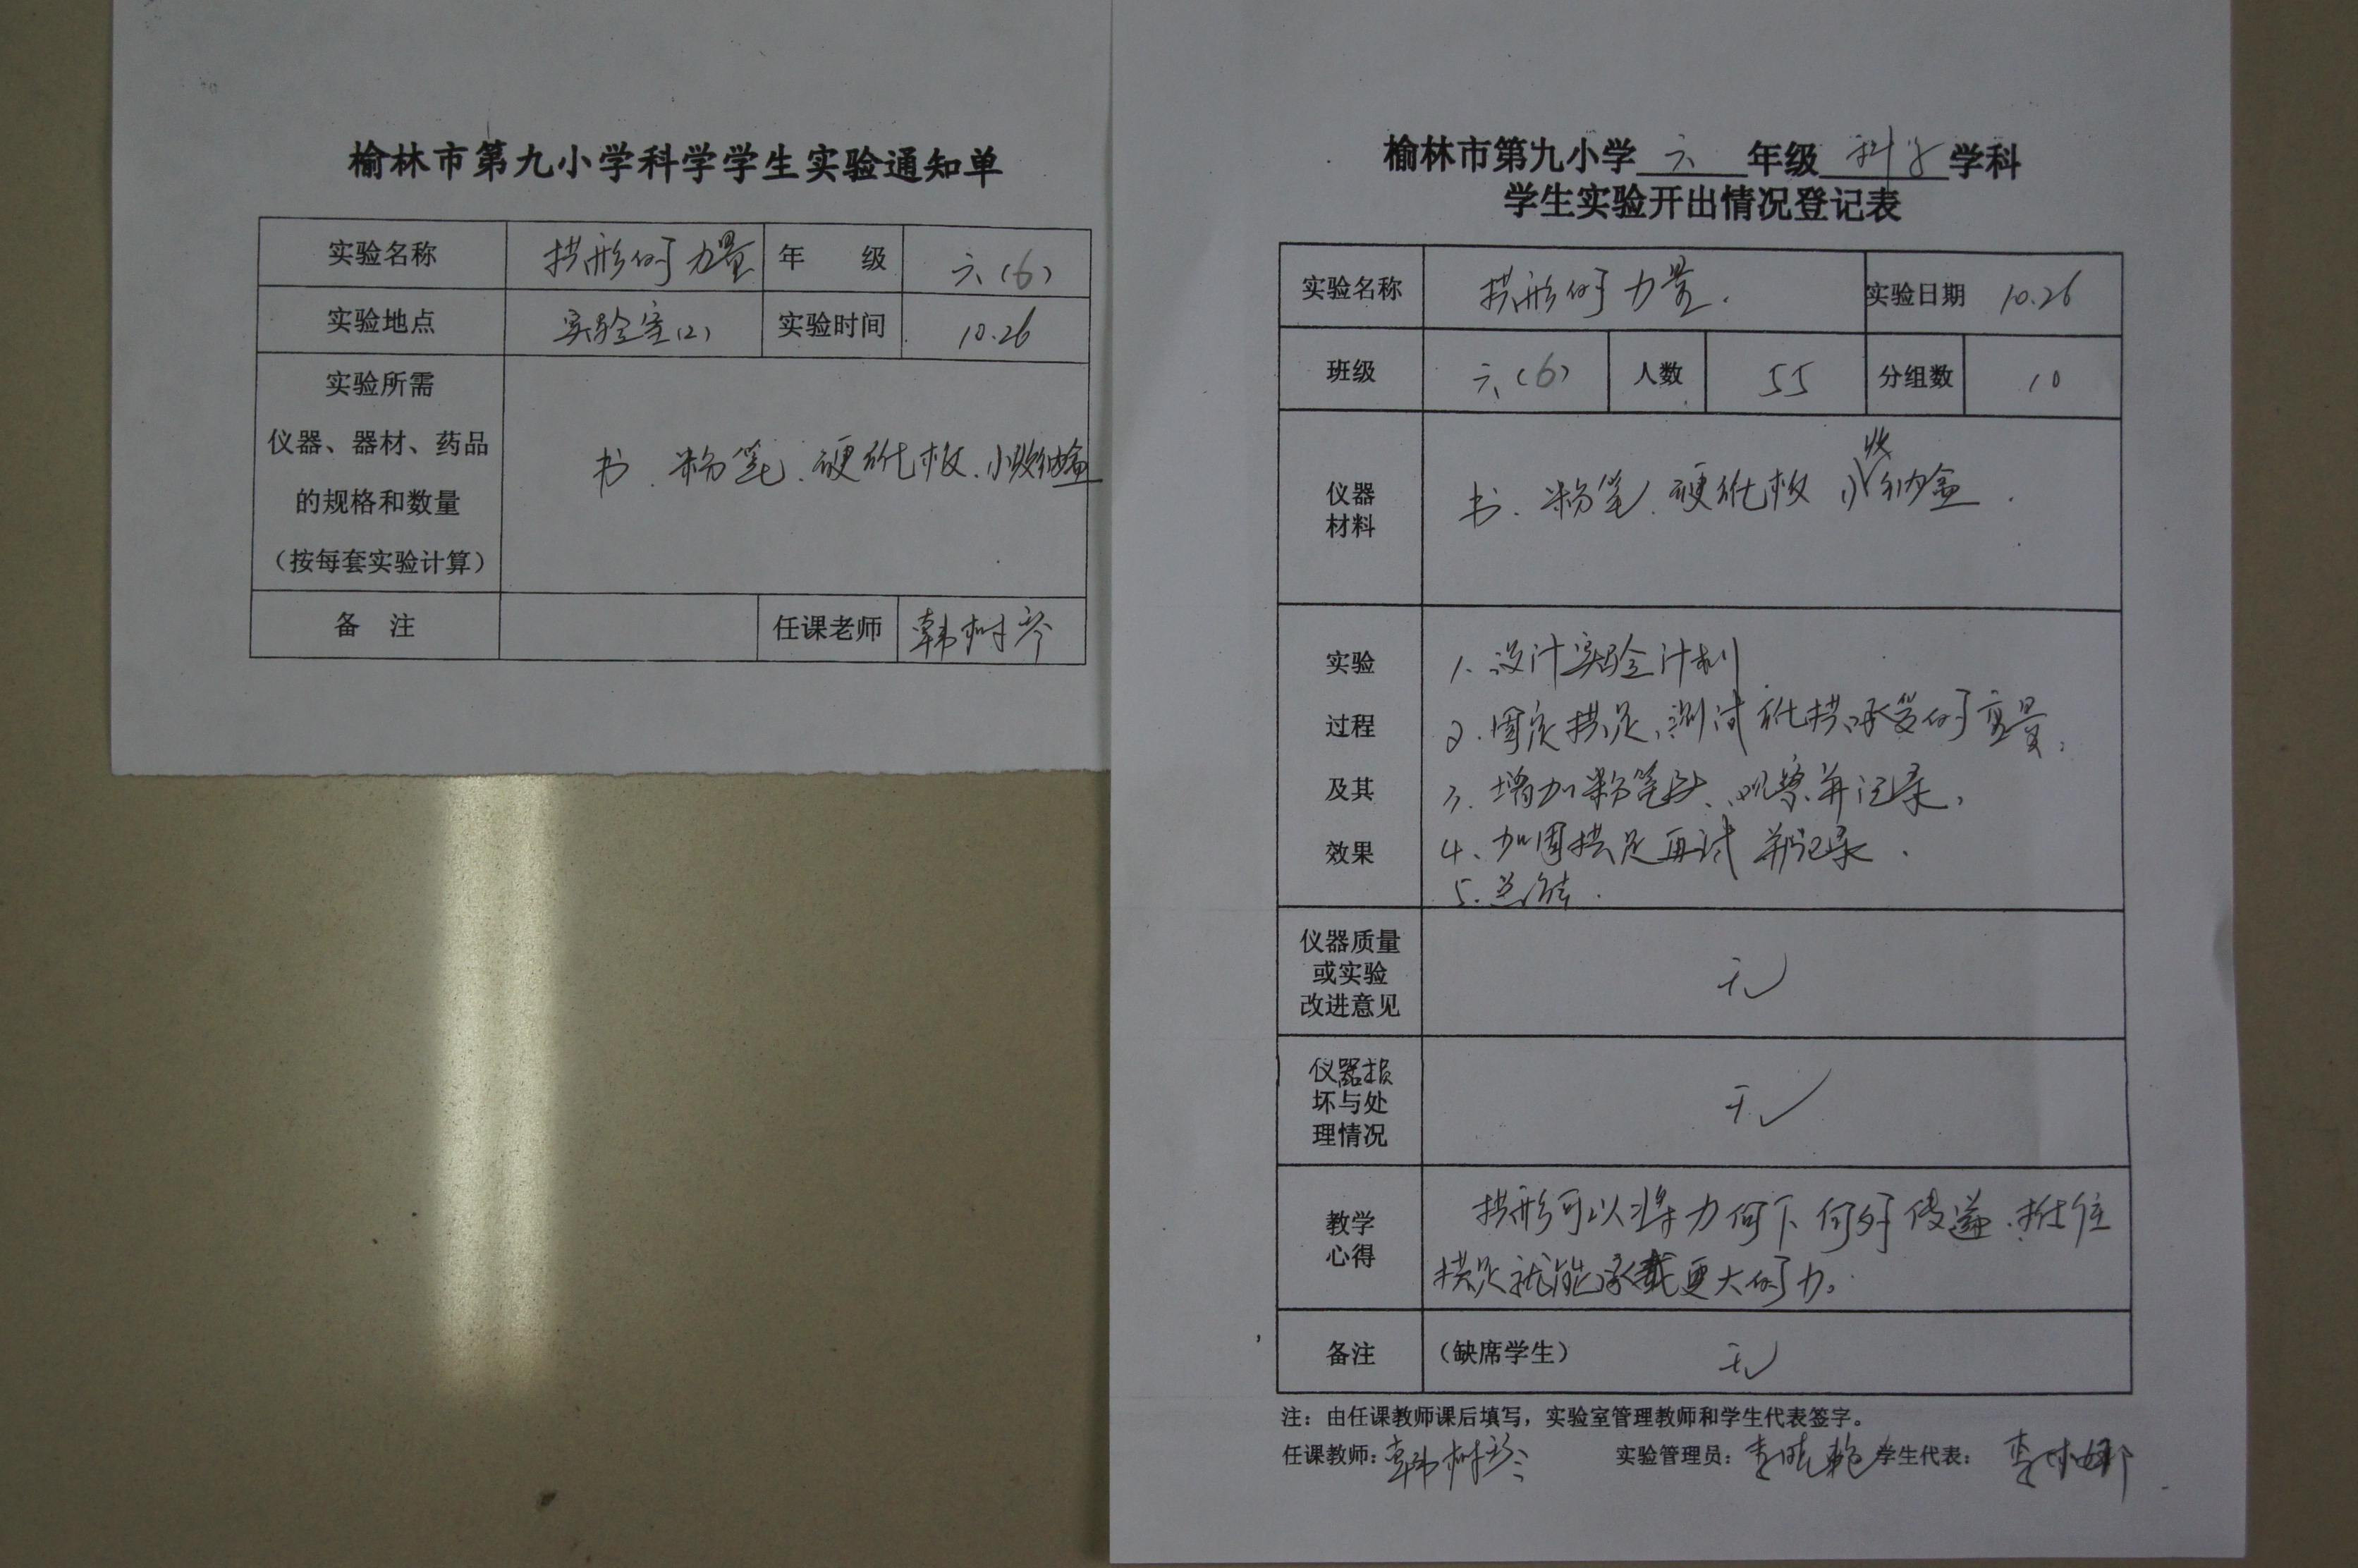 榆林市第九小学科学学生实验通知单
实验名称 拱形的力量 年 级 六(6)
实验地点 实验室(2) 实验时间 10.26
实验所需
仪器、器材、药品
的规格和数量
(按每套实验计算)
书、粉笔、硬纸板、小收纳盒
备 注 任课老师 韩树琴
榆林市第九小学 六 年级 科学 学科
学生实验开出情况登记表
实验名称 拱形的力量. 实验日期 10.26
班级 六(6) 人数 55 分组数 10
仪器
材料
书、粉笔、硬纸板 小收纳盒.
实验
过程
及其
效果
1、设计实验计划
2、固定拱足、测试纸拱承受的重量,
3、增加粉笔头、观察并记录,
4、加固拱足再试 并记录.
5、总结.
仪器质量
或实验
改进意见
无
仪器损
坏与处
理情况
无
教学
心得
拱形可以将力向下向外传递、抵住
拱足就能承载更大的力。
备注 (缺席学生) 无
注:由任课教师课后填写,实验室管理教师和学生代表签字。
任课教师:韩树琴 实验管理员:李 学生代表:李